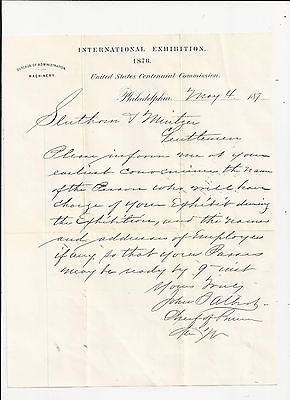 INTERNATIONAL EXHIBITION.
1876.
BUREAU OF ADMINISTRATION
MACHINERY
United States Centennial Commission.
Philadelphia, May 4 187
& Mintzer
Gentlemen
Please inform me at your
earliest Convenience the Name
of the Person who will have
Charge of your Exhibit during
the Exhibition, and the Names
and addresses of Employees
if any so that your Passes
may be ready by 9" inst
Yours Truly
John
Chief of